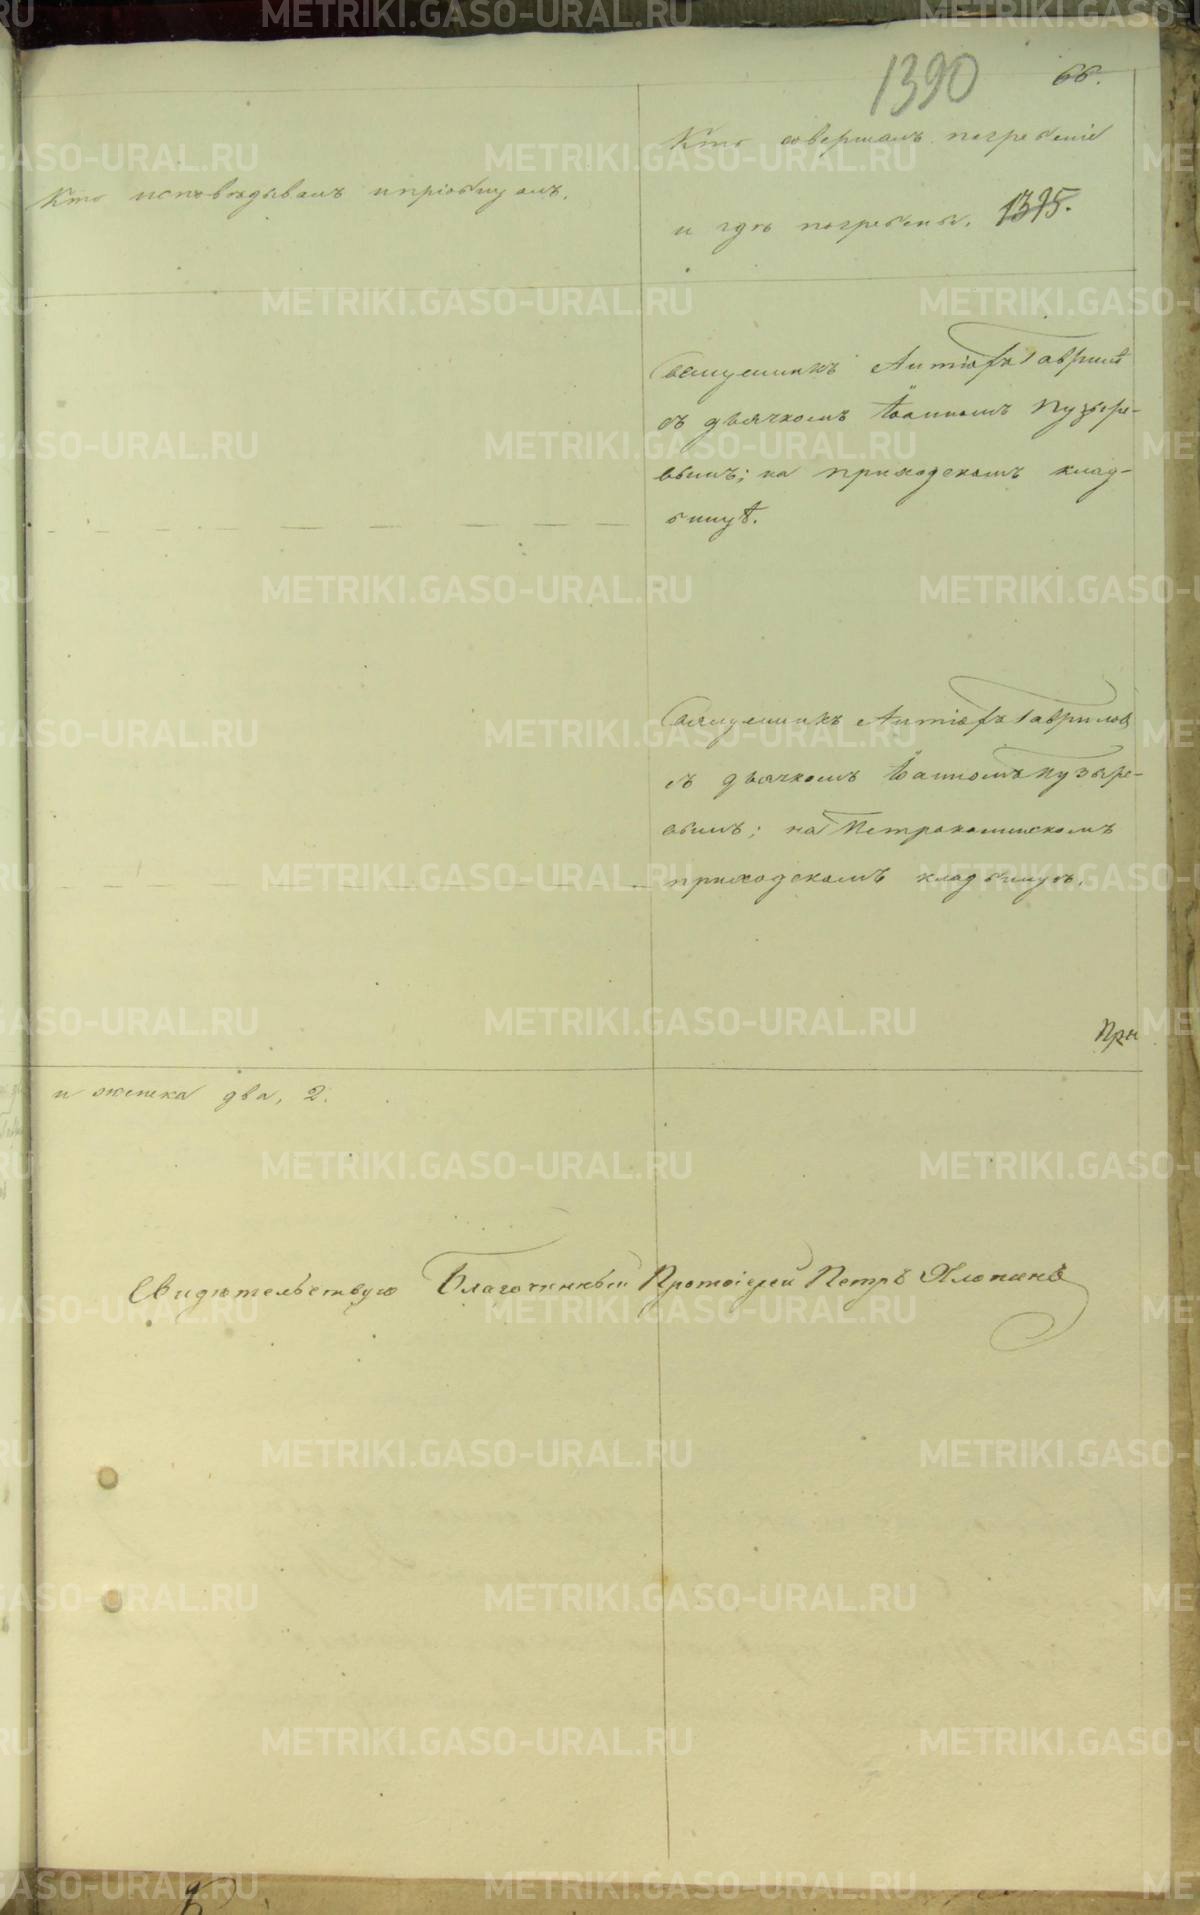 1390
66.
Кто исповѣдывалъ и пріобщалъ.
Кто совершалъ погребеніе
и гдѣ погребены. 1395.
Священникъ Антіохъ Гаврил
съ дьячкомъ Іоанномъ Пузыре-
вымъ; на приходскомъ клад-
бищѣ.
Священникъ Антіохъ Гаврилов
съ дьячкомъ Іоанномъ Пузыре-
вымъ; на Петрокаменскомъ
приходскомъ кладбищѣ.
При
и женска два, 2.
Свидѣтельствую Благочинный Протоіерей Петръ Хлопинъ
METRIKI.GASO-URAL.RU